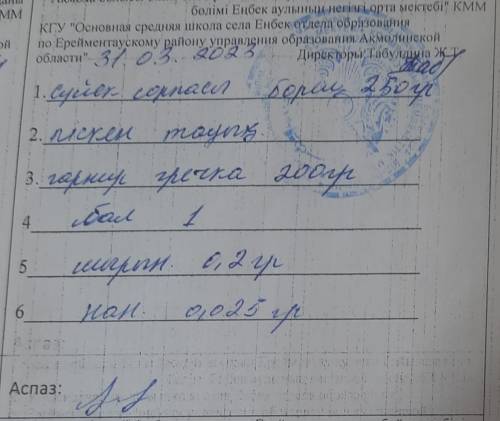 бөлімі Еңбек ауылының негізгі орта мектебі" КММ
КГУ "Основная средняя школа села Енбек отдела образования
по Ерейментаускому району управления образования Акмолинской
области" 31.03.2023 Директоры Табулдина Ж.Т.
1. сүйек сорпасы борщ 250гр
2. піскен тауық
3. гарнир гречка 200гр
4 бал 1
5 шырын. 0,2 гр
6 нан. 0,025 гр
Аспаз: